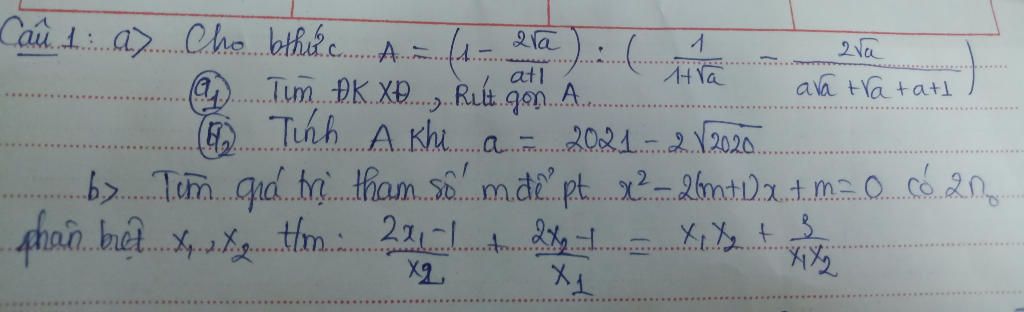 Câu 1: a> Cho bthức A = (1 - 2√a/(a+1)) : (1/(1+√a) - 2√a/(a√a + √a + a + 1))
a1 Tìm ĐK XĐ, Rút gọn A.
a2 Tính A khi a = 2021 - 2√2020
b> Tìm giá trị tham số m để pt x² - 2(m+1)x + m = 0 có 2 no
phân biệt x₁, x₂ t/m: (2x₁ - 1)/x₂ + (2x₂ - 1)/x₁ = x₁x₂ + 3/(x₁x₂)